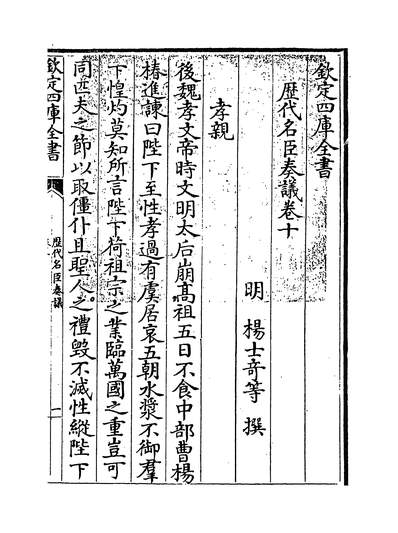 欽定四庫全書
歴代名臣奏議卷十
明 楊士奇等 撰
孝親
後魏孝文帝時文明太后崩高祖五日不食中部曹楊
椿進諫曰陛下至性孝過有虞居哀五朝水漿不御羣
下惶灼莫知所言陛下荷祖宗之業臨萬國之重豈可
同匹夫之節以取僵仆且聖人之禮毁不滅性縱陛下
欽定四庫全書
歴代名臣奏議
一